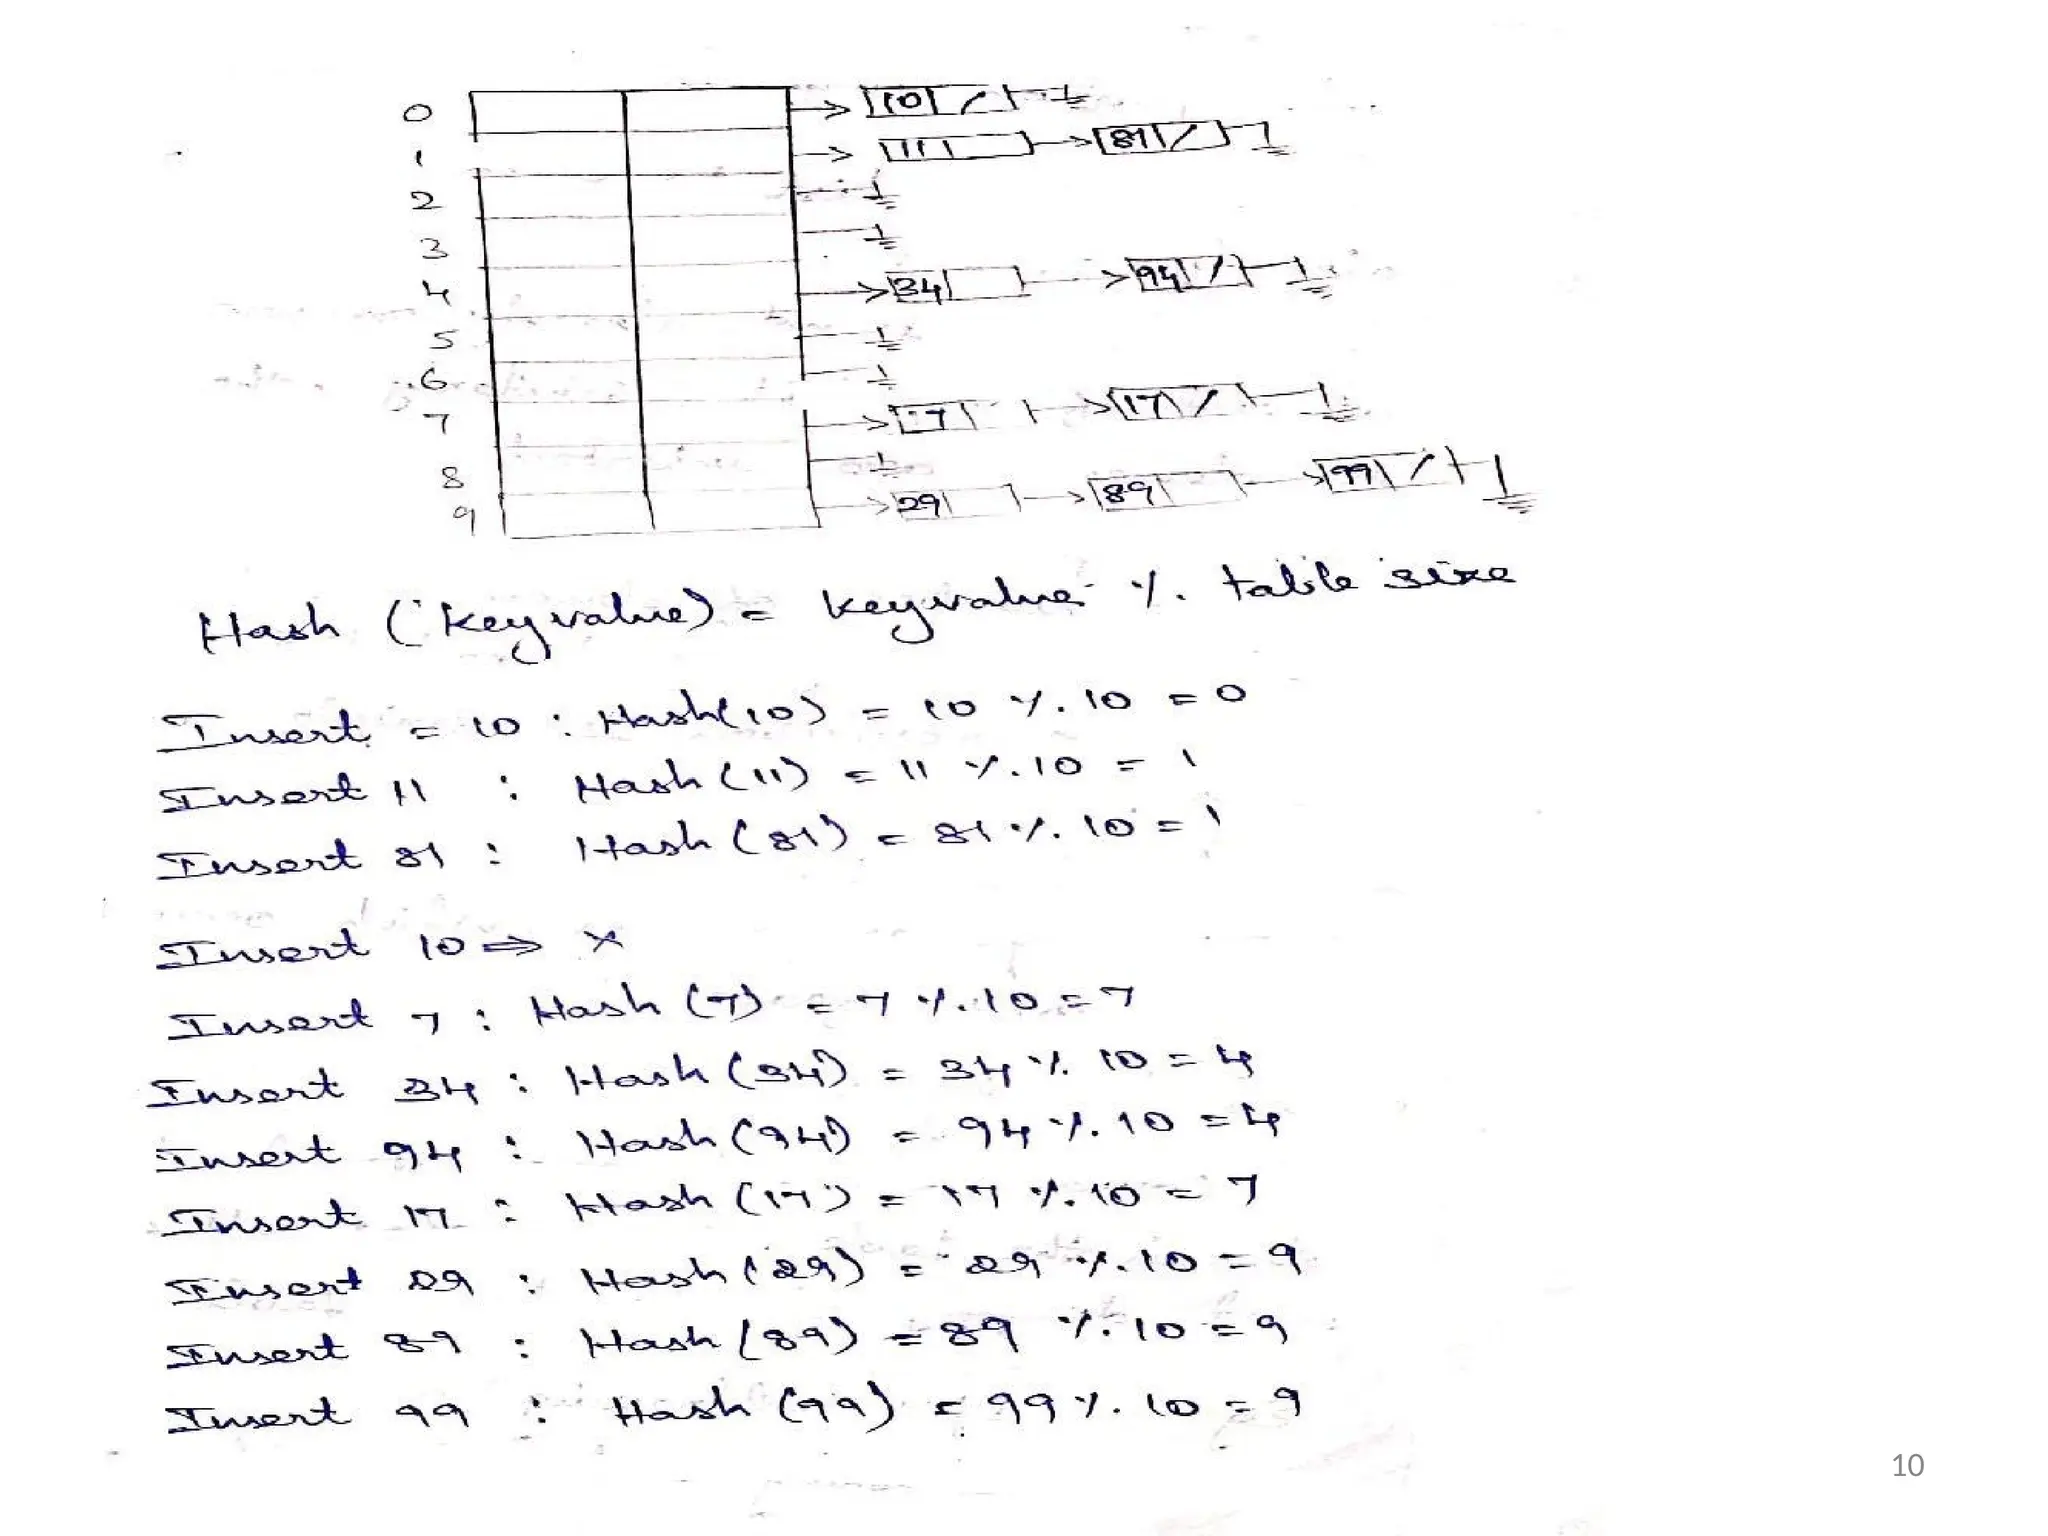 0 10
1 11 81
2
3
4 34 94
5
6
7 7 17
8
9 29 89 99
Hash (keyvalue) = keyvalue % table size
Insert = 10 : Hash(10) = 10 % 10 = 0
Insert 11 : Hash (11) = 11 % 10 = 1
Insert 81 : Hash (81) = 81 % 10 = 1
Insert 10 ⇒ x
Insert 7 : Hash (7) = 7 % 10 = 7
Insert 34 : Hash (34) = 34 % 10 = 4
Insert 94 : Hash (94) = 94 % 10 = 4
Insert 17 : Hash (17) = 17 % 10 = 7
Insert 29 : Hash (29) = 29 % 10 = 9
Insert 89 : Hash (89) = 89 % 10 = 9
Insert 99 : Hash (99) = 99 % 10 = 9
10